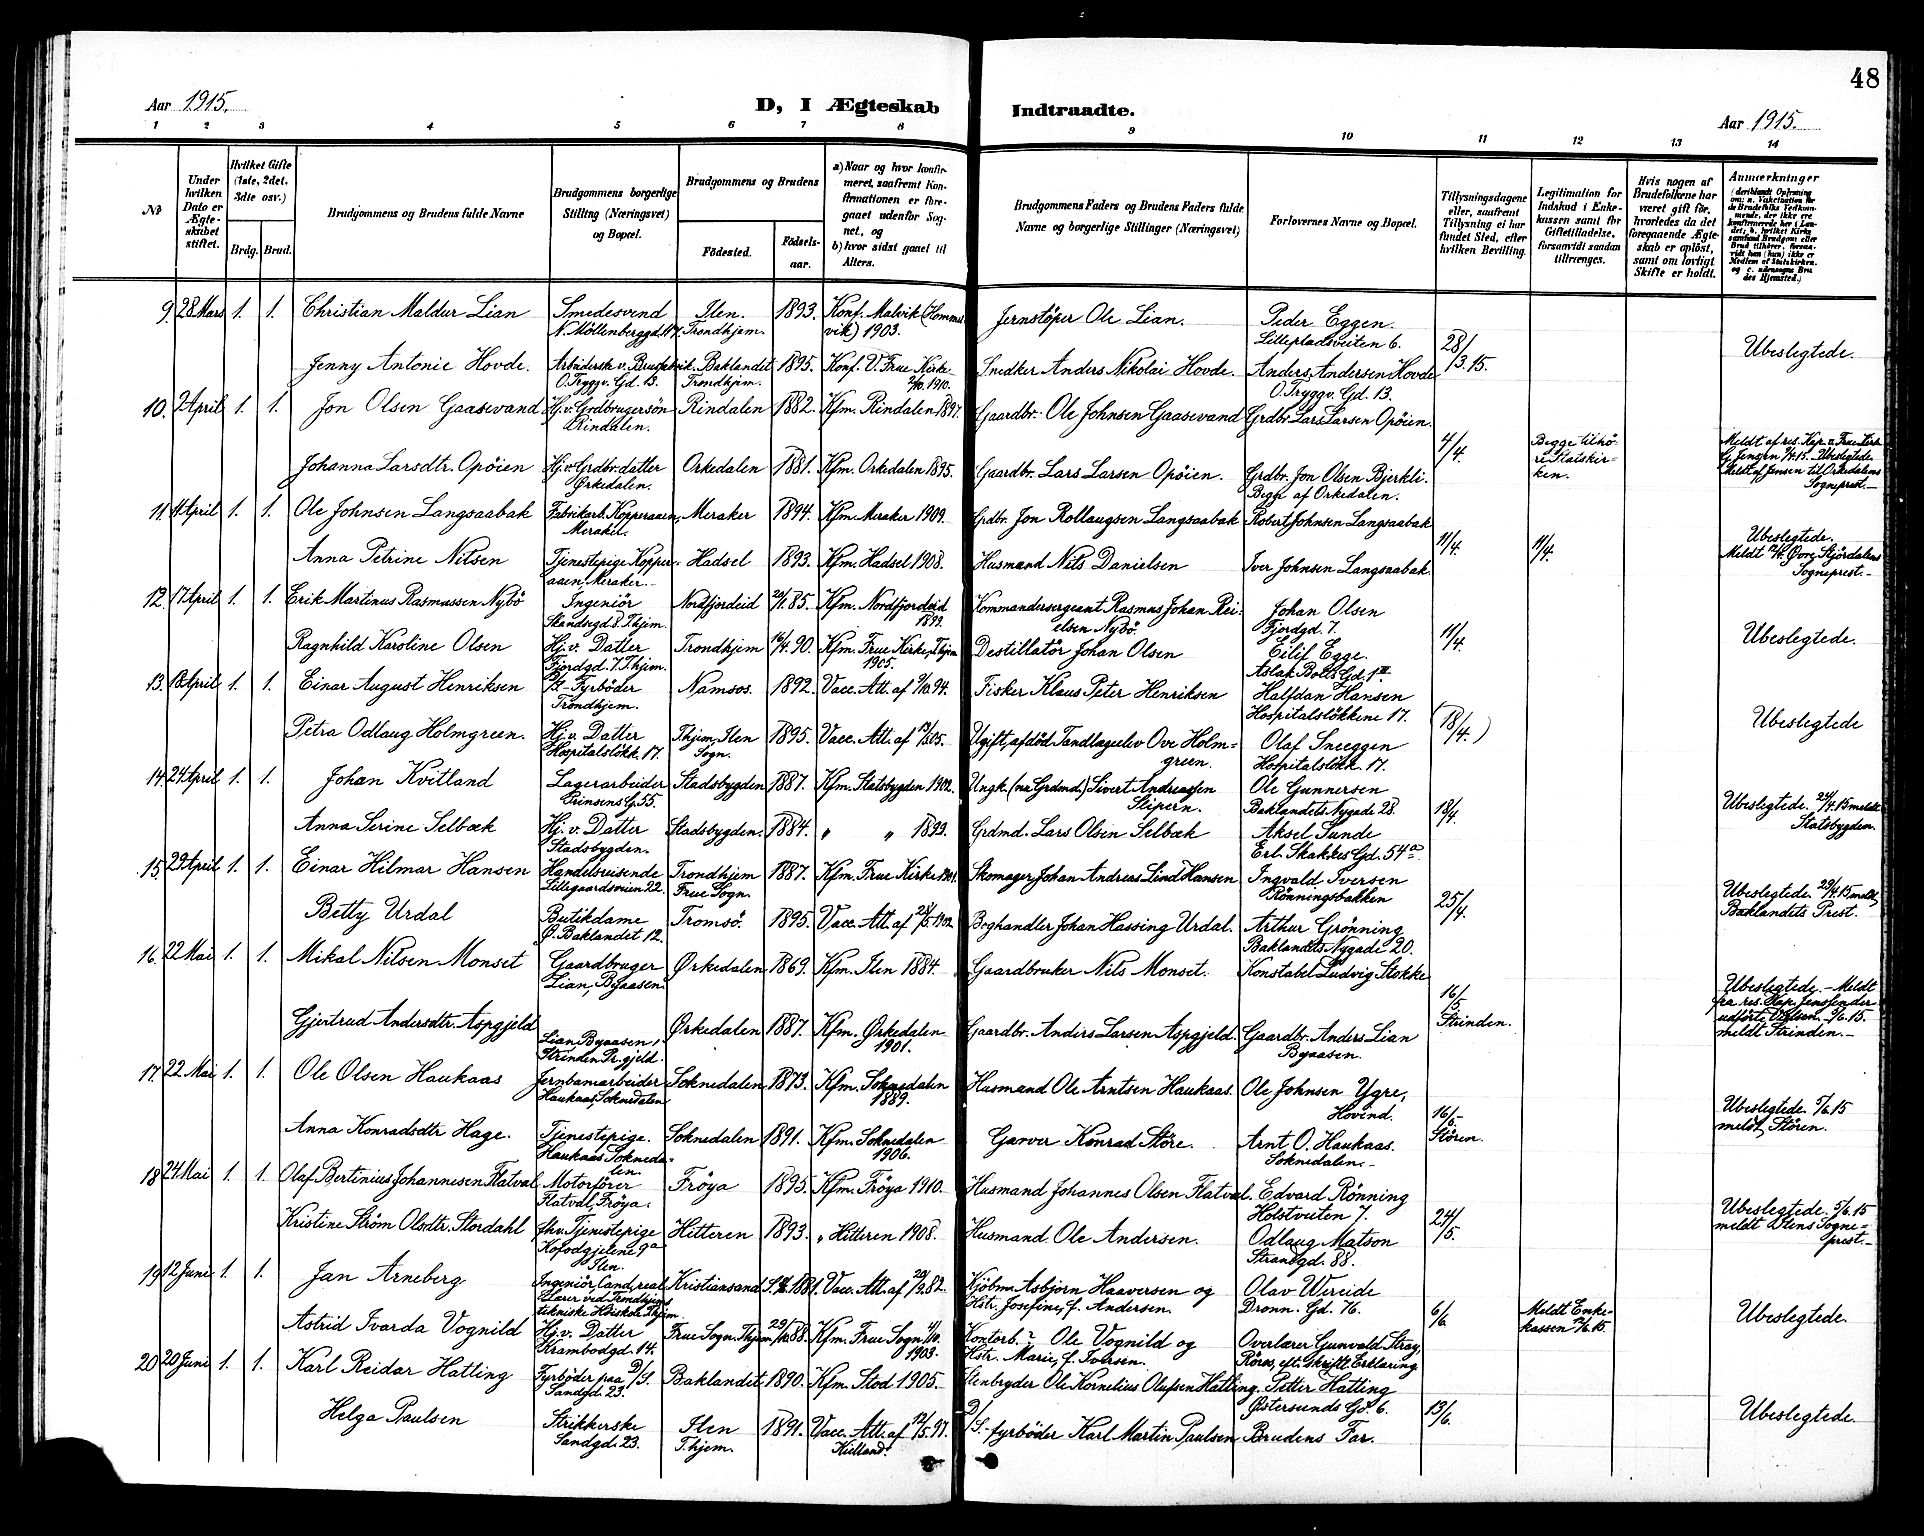 48
Aar 1915.
D, I Ægteskab
Indtraadte.
Aar 1915.
1 2 3 4 5 6 7 8 9 10 11 12 13 14
No
Under hvilken Dato er Ægteskabet stiftet.
Hvilket Gifte (1ste, 2det, 3die osv.)
Brdg. Brud.
Brudgommens og Brudens fulde Navne
Brudgommens borgerlige Stilling (Næringsvei) og Bopæl.
Brudgommens og Brudens
Fødested.
Fødselsaar.
a) Naar og hvor konfirmeret, saafremt Konfirmationen er foregaaet udenfor Sognet, og
b) hvor sidst gaaet til Alters.
Brudgommens Faders og Brudens Faders fulde Navne og borgerlige Stillinger (Næringsvei)
Forlovernes Navne og Bopæl.
Tillysningsdagene eller, saafremt Tillysning ei har fundet Sted, efter hvilken Bevilling.
Legitimation for Indskud i Enkekassen samt for Giftetilladelse, forsaavidt saadan tiltrænges.
Hvis nogen af Brudefolkene har været gift før, hvorledes da det foregaaende Ægteskab er opløst, samt om lovligt Skifte er holdt.
Anmærkninger
9. 28 Mars 1. 1. Christian Maldur Lian Smedesvend Ilen. 1893. Konf. Malvik (Hommel Jernstøper Ole Lian. Peder Eggen.
N. Möllenberggd. Trondhjem. vik) 1903. Lillepladsveiten 6. 28/
Jenny Antonie Hovde. Baklandet 1895. Konf. V. Frue Kirke Snedker Anders Nikolai Hovde. Anders Andersen Hovde 3.15. Ubeslegtede.
O. Tryggv. Gd. 13. Trondhjem. 2/10. 1910. O. Tryggv. Gd. 13.
10. 2 April 1. 1. Jon Olsen Gaasevand Hj. v. Grdbrugersön Rindalen 1882. Kfm. Rindalen 1897. Gaardbr. Ole Johnsen Gaasevand Grdbr. Lars Larsen Opöien.
Rindalen. 4/4. Begge tilhö-
Johanna Larsdtr. Opöien Hj. v. Grdbr. datter Orkedalen 1881. Kfm. Orkedalen 1895. Gaardbr. Lars Larsen Opöien. Grdbr. Jon Olsen Bjerkli. re Statskir- Meldt af res. Kap. v. Frue Kirke
Orkedalen. Begge af Orkedalen. ken. Jensen Ubeslegtede. Meldt af Jensen til Orkedalens Sogneprest.
11. 11 April 1. 1. Ole Johnsen Langsaabak Fabrikarb. Kopperaaen, Meraker 1894. Kfm. Meraker 1909. Grdbr. Jon Rollaugsen Langsaabak Robert Johnsen Langsaabak
Meraker. 11/4. 11/4. Ubeslegtede.
Anna Petrine Nilsen Tjenestepige Kopper- Hadsel 1893. Kfm. Hadsel 1908. Husmand Nils Danielsen Iver Johnsen Langsaabak. Meldt Övre Stjördalens
aaen, Meraker. Sogneprest.
12. 17 April 1. 1. Erik Martinus Rasmussen Nybö Ingeniör Nordfjordeid 85. Kfm. Nordfjordeid Kommandersergeant Rasmus Johan Rei- Johan Olsen
Standsegd. 8. T.hjem. 1899. elsen Nybö Fjordgd. 7. 11/4.
Ragnhild Karoline Olsen Hj. v. Datter Trondhjem 16/4. 90. Kfm. Frue Kirke, T.hjem Destillatör Johan Olsen Eilif Egge. Ubeslegtede.
Fjordgd. 7. T.hjem. 1905. Aslak Bolts Gd. 1 III
13. 18 April 1. 1. Einar August Henriksen Fyrböder Namsos. 1892. Vacc. Att. af 9/10. 94. Fisker Klaus Peter Henriksen Halfdan Hansen
Trondhjem. Hospitalslökkene 17. (18/4.)
Petra Odlaug Holmgreen. Hj. v. Datter T.hjem, Ilen 1895. Vacc. Att. af Ugift, afdöd Tandlægeelev Ove Holm- Olaf Sneeggen Ubeslegtede
Hospitalslökk. 17. Sogn. green. Hospitalslökk. 17.
14. 24 April 1. 1. Johan Kvitland Lagerarbeider Stadsbygden 1887. Kfm. Statsbygden 1902. Ungk. (nu Grdmd.) Sivert Andreassen Ole Gunnersen
Prinsens G. 55. Stipern. Baklandets Nygade 28. 18/4. Ubeslegtede. 24/4. 15 meldt
Anna Serine Selbæk Hj. v. Datter Stadsbygden. 1884. " " 1899. Grdmd. Lars Olsen Selbæk Aksel Sunde Statsbygden.
Stadsbygden. Erl. Skakkes Gd. 54 a.
15. 29 April 1. 1. Einar Hilmar Hansen Handelsreisende Trondhjem 1887. Kfm. Frue Kirke Skomager Johan Andreas Lind Hansen Ingvald Iversen
Lillegaardsveien 22. Frue Sogn. Rönningsbakken 25/4. Ubeslegtede. 29/4 15 meldt
Betty Urdal Butikdame Tromsö. 1895. Vacc. Att. af Boghandler Johan Hassing Urdal. Arthur Grönning Baklandets Prest.
Ö. Baklandet 12. Baklandets Nygade 20.
16. 22 Mai 1. 1. Mikal Nilsen Monset Gaardbruger Orkedalen 1869. Kfm. Ilen 1884. Gaardbruker Nils Monset. Konstabel Ludvig Stokke
Lian, Byaasen. 16/5 Ubeslegtede. - Meldt
Gjertrud Andersdtr. Aspgjeld Lian, Byaasen, Orkedalen 1887. Kfm. Orkedalen Gaardbr. Anders Larsen Aspgjeld. Gaardbr. Anders Lian Strinden. fra res. Kap.
Strinden Pr. gjeld. 1901. Byaasen. meldt Strinden. -
17. 22 Mai 1. 1. Ole Olsen Haukaas Jernbanearbeider Soknedalen 1873. Kfm. Soknedalen Husmand Ole Arntsen Haukaas. Ole Johnsen Ygre,
Haukaas, Soknedalen 1889. Hovind. 16/5 Ubeslegtede. 5/6. 15
Anna Konradsdtr Hage. Tjenestepige. Soknedalen 1891. Kfm. Soknedalen Garver Konrad Störe. Arnt O. Haukaas. Stören. meldt, Stören.
Haukaas Sokneda- 1906. Soknedalen. -
len.
18 24 Mai 1. 1. Olaf Bertinius Johannesen Flatval Motorförer Fröya 1895. Kfm. Fröya 1910. Husmand Johannes Olsen Flatval. Edvard Rönning
Flatval, Fröya. Holstveiten 7. 24/5. Ubeslegtede. 5/6. 15
Kristine Ström Olsdtr. Stordahl fhv. Tjenestepige Hitteren 1893. " Hitteren 1908. Husmand Ole Andersen. Odlaug Matson meldt Ilens Sogne-
Kofodgjelene 9a Strandgd. 88. prest. -
Ilen.
19 12 Juni 1. 1. Jan Arneberg Ingeniör, Cand. real. Kristiansand S. 1881. Vacc. Att. af 20/9. 82. Kjöbm. Asbjörn Haaversen og Olav Wereide
Lærer ved Trondhjems Hstr. Josefine, f. Andersen. Dronn. Gd. 76. 6/6 Meldt Enke-
tekniske Höiskole T.hjem. kassen 12/6.15.
Astrid Ivarda Vognild Hj. v. Datter Frue Sogn, T.hjem 88. Kfm. Frue Sogn Kontorb. Ole Vognild og Overlærer Gunvald Strag, Ubeslegtede.
Krambodgd. 14. 1903. Hstr. Marie, f. Iversen. Röros, eft. skriftl. Erklæring
20 20 Juni 1. 1. Karl Reidar Hatling Fyrböder paa D/S. Baklandet 1890. Kfm. Stod 1905. Stenbryder Ole Kornelius Olufsen Hatling. Petter Hatling
Sandgd. 23. Östersunds Gd. 6. 13/6.
Helga Paulsen Strikkerske Ilen 1891. Vacc. Att. af 12/5. 97. D/S.-fyrböder Karl Martin Paulsen Brudens Far. Ubeslegtede.
Sandgd. 23. T.hjem. Kielland.